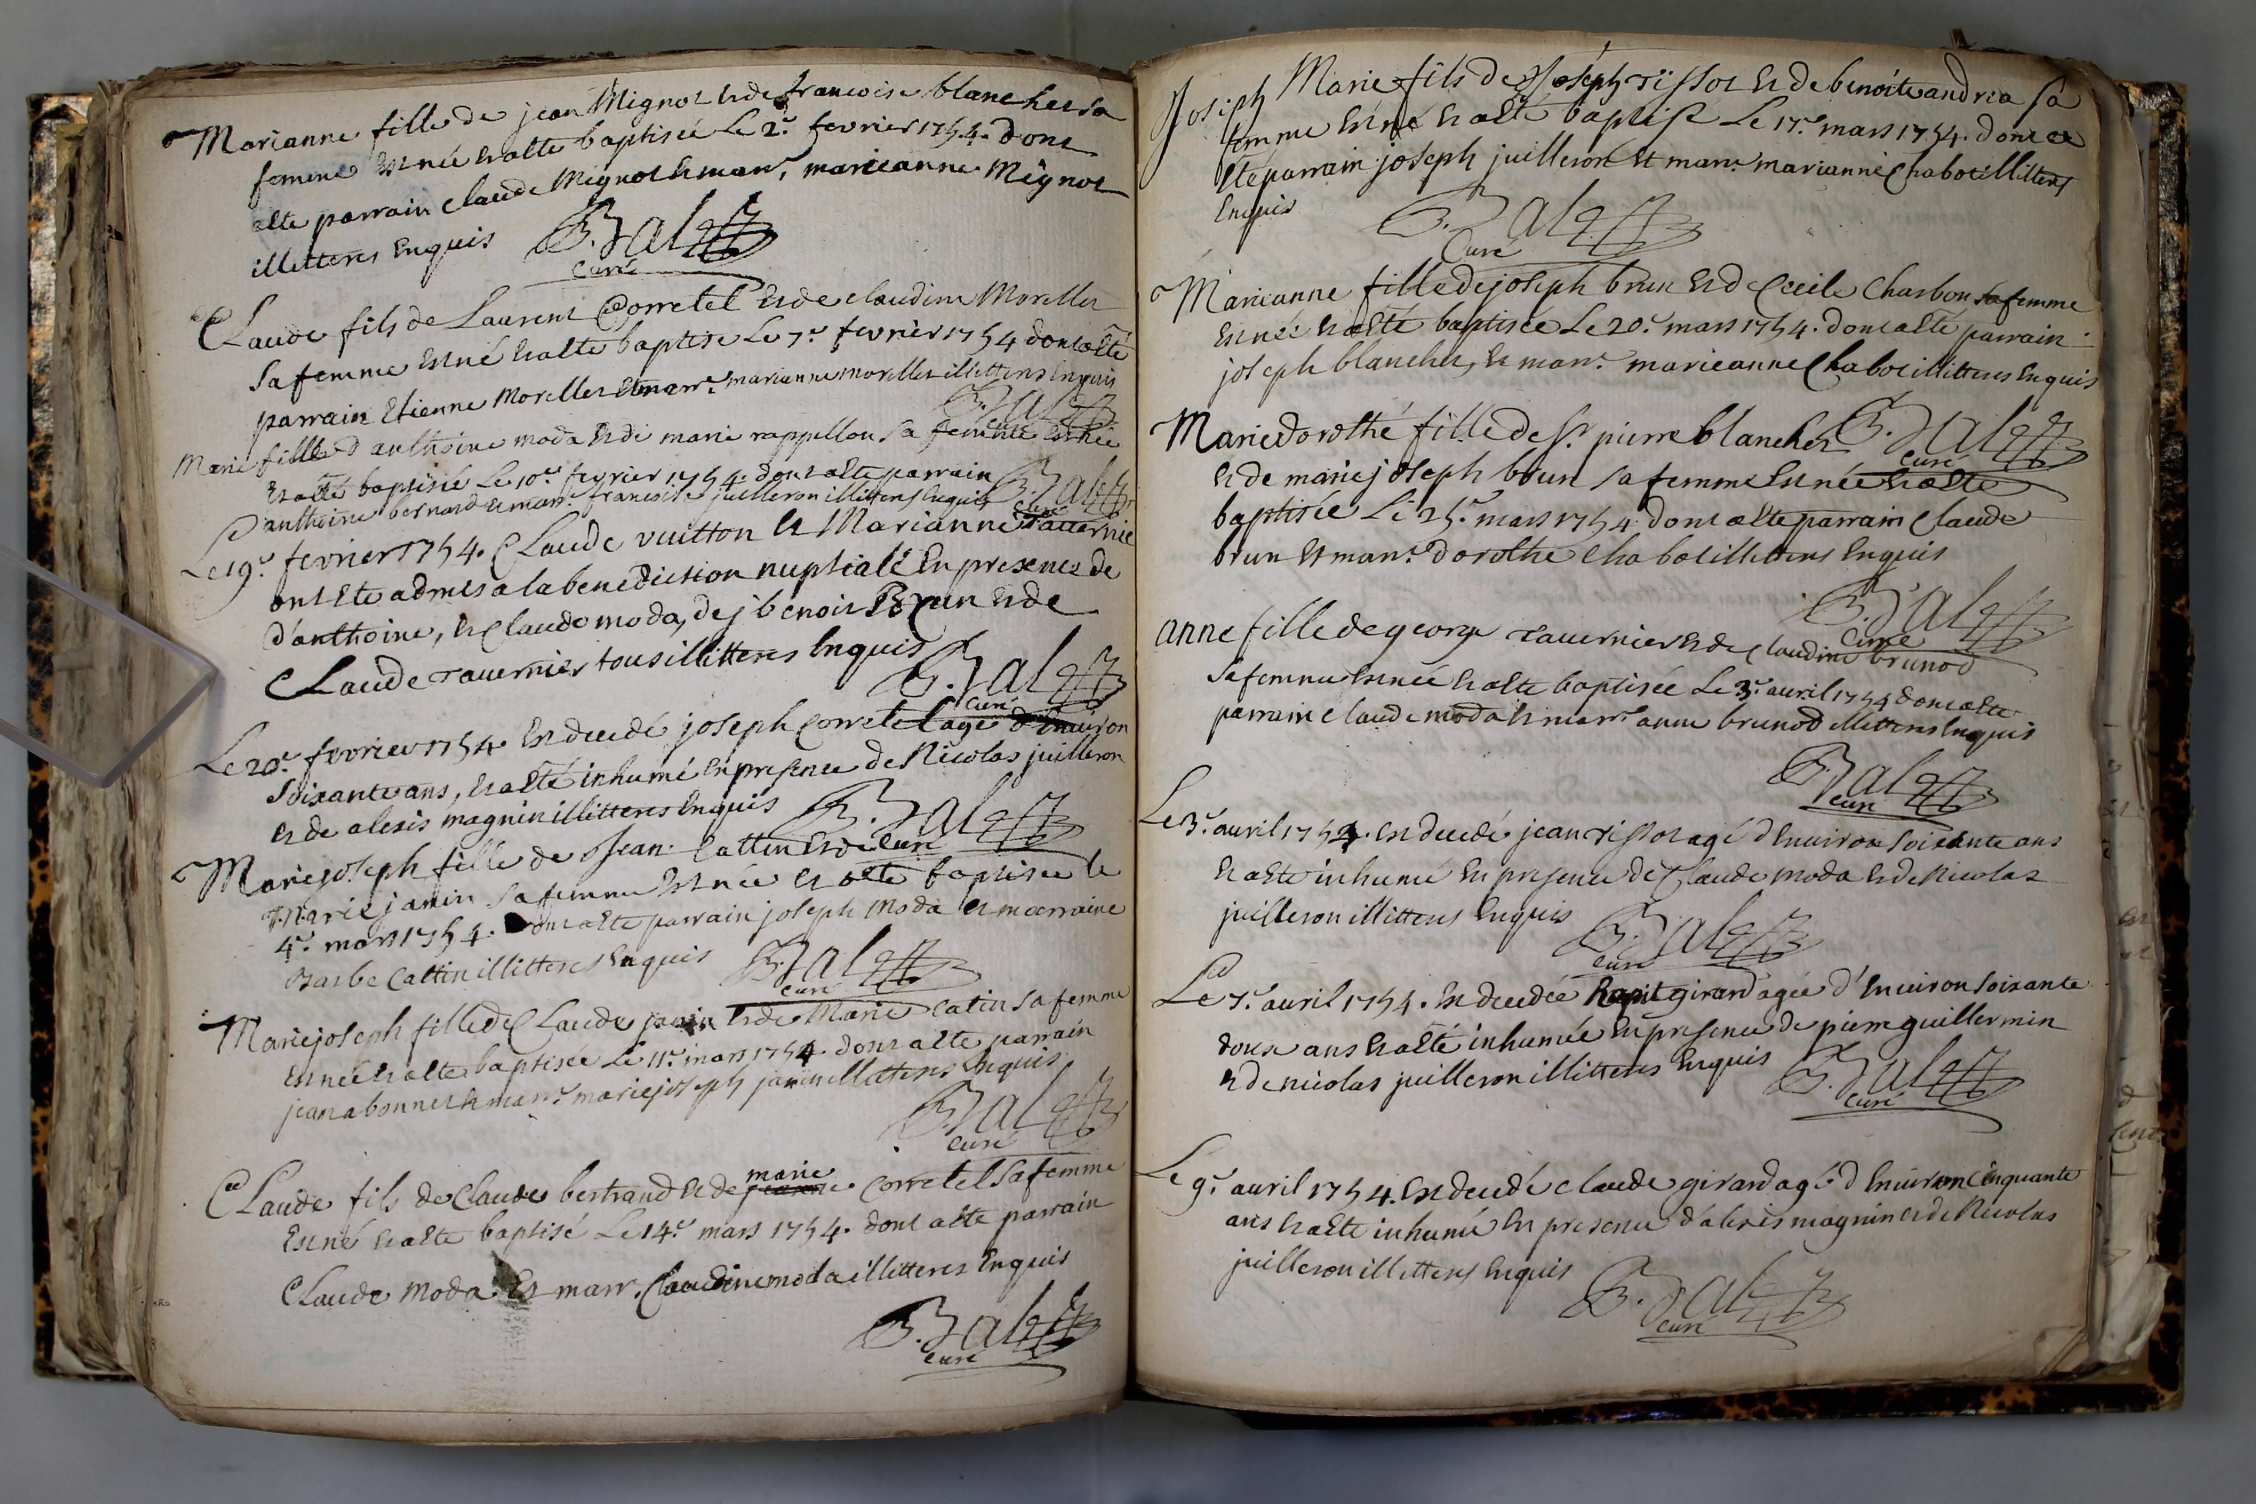 Marianne fille de jean Mignot et de francoise blanchet sa
femme est née et a esté baptisée Le 2e. fevrier 1754. dont
a esté parrain claude Mignot et marr. marieanne Mignot
illetteres Enquis B. Balt
curé
Claude fils de Laurent Corretel et de claudine Morellet
sa femme est né et a esté baptisé Le 7e. fevrier 1754 dont a esté
parrain Etienne Morellet et marr. marianne morellet illitteres Enquis
Marie fille d'anthoine moda et de marie rappillon sa femme est née
et a esté baptisée Le 10e. fevrier 1754. dont a esté parrain
anthoine bernard et marr. francoise juilleron illitteres Enquis
curé
Le 19e. fevrier 1754. Claude vuitton et Marianne tavernier
ont Eté admis a la benediction nuptiale En presence de
d'anthoine, et Claude moda, de j benoit Brun et de
Claude tavernier tous illitteres Enquis
curé
Le 20e. fevrier 1754. est decedé joseph corretel agé d'Environ
soixante ans, et a esté inhumé En presence de Nicolas juilleron
et de alexis magnin illitteres Enquis
curé
Marie joseph fille de Jean Cattin et de
Marie janin sa femme est née et a esté baptisée le
4e. mars 1754. dont a esté parrain joseph Moda et marraine
Barbe Cattin illitteres Enquis
curé
Marie joseph fille de Claude janin et de Marie Catin sa femme
est née et a esté baptisée Le 11e. mars 1754. dont a esté parrain
jean abonnet et marr. marie joseph janin illitteres Enquis
curé
Claude fils de Claude bertrand et de marie Corretel sa femme
est né et a esté baptisé Le 14e. mars 1754. dont a esté parrain
Claude Moda Et marr. Claudine moda illitteres Enquis
curé
Joseph Marie fils de Joseph tissot et de benoite andrea sa
femme est né et a esté baptisé Le 17e. mars 1754. dont a
Eté parrain joseph juilleron et marr. marianne Chabot illitteres
Enquis
Curé
Marieanne fille de joseph brun et de Cecile Charbon sa femme
est née et a Esté baptisée Le 20e. mars 1754. dont a Esté parrain
joseph blanchet, et marr. marieanne Chabot illitteres Enquis
Marie dorothé fille de sr. pierre blanchet
curé
et de marie joseph brun sa femme est née et a esté
baptisée Le 25e. mars 1754 dont a esté parrain Claude
brun et marr. dorothe Chabot illitteres Enquis
Curé
anne fille de george tavernier et de Claudine brunod
sa femme est née et a esté baptisée Le 3e. avril 1754 dont a esté
parrain Claude moda et marr. anne brunod illitteres Enquis
curé
Le 3e. avril 1754. est decedé jean tissot agé d'Environ soixante ans
et a esté inhumé En presence de Claude moda et de Nicolas
juilleron illitteres Enquis
curé
Le 7e. avril 1754. est decedée girard agée d'Environ soixante
douze ans et a esté inhumée En presence de pierre guillermin
et de nicolas juilleron illitteres Enquis
curé
Le 9e. avril 1754. est decedé claude girard agé d'Environ Cinquante
ans et a esté inhumé En presence d'alexis magnin et de Nicolas
juilleron illitteres Enquis
curé